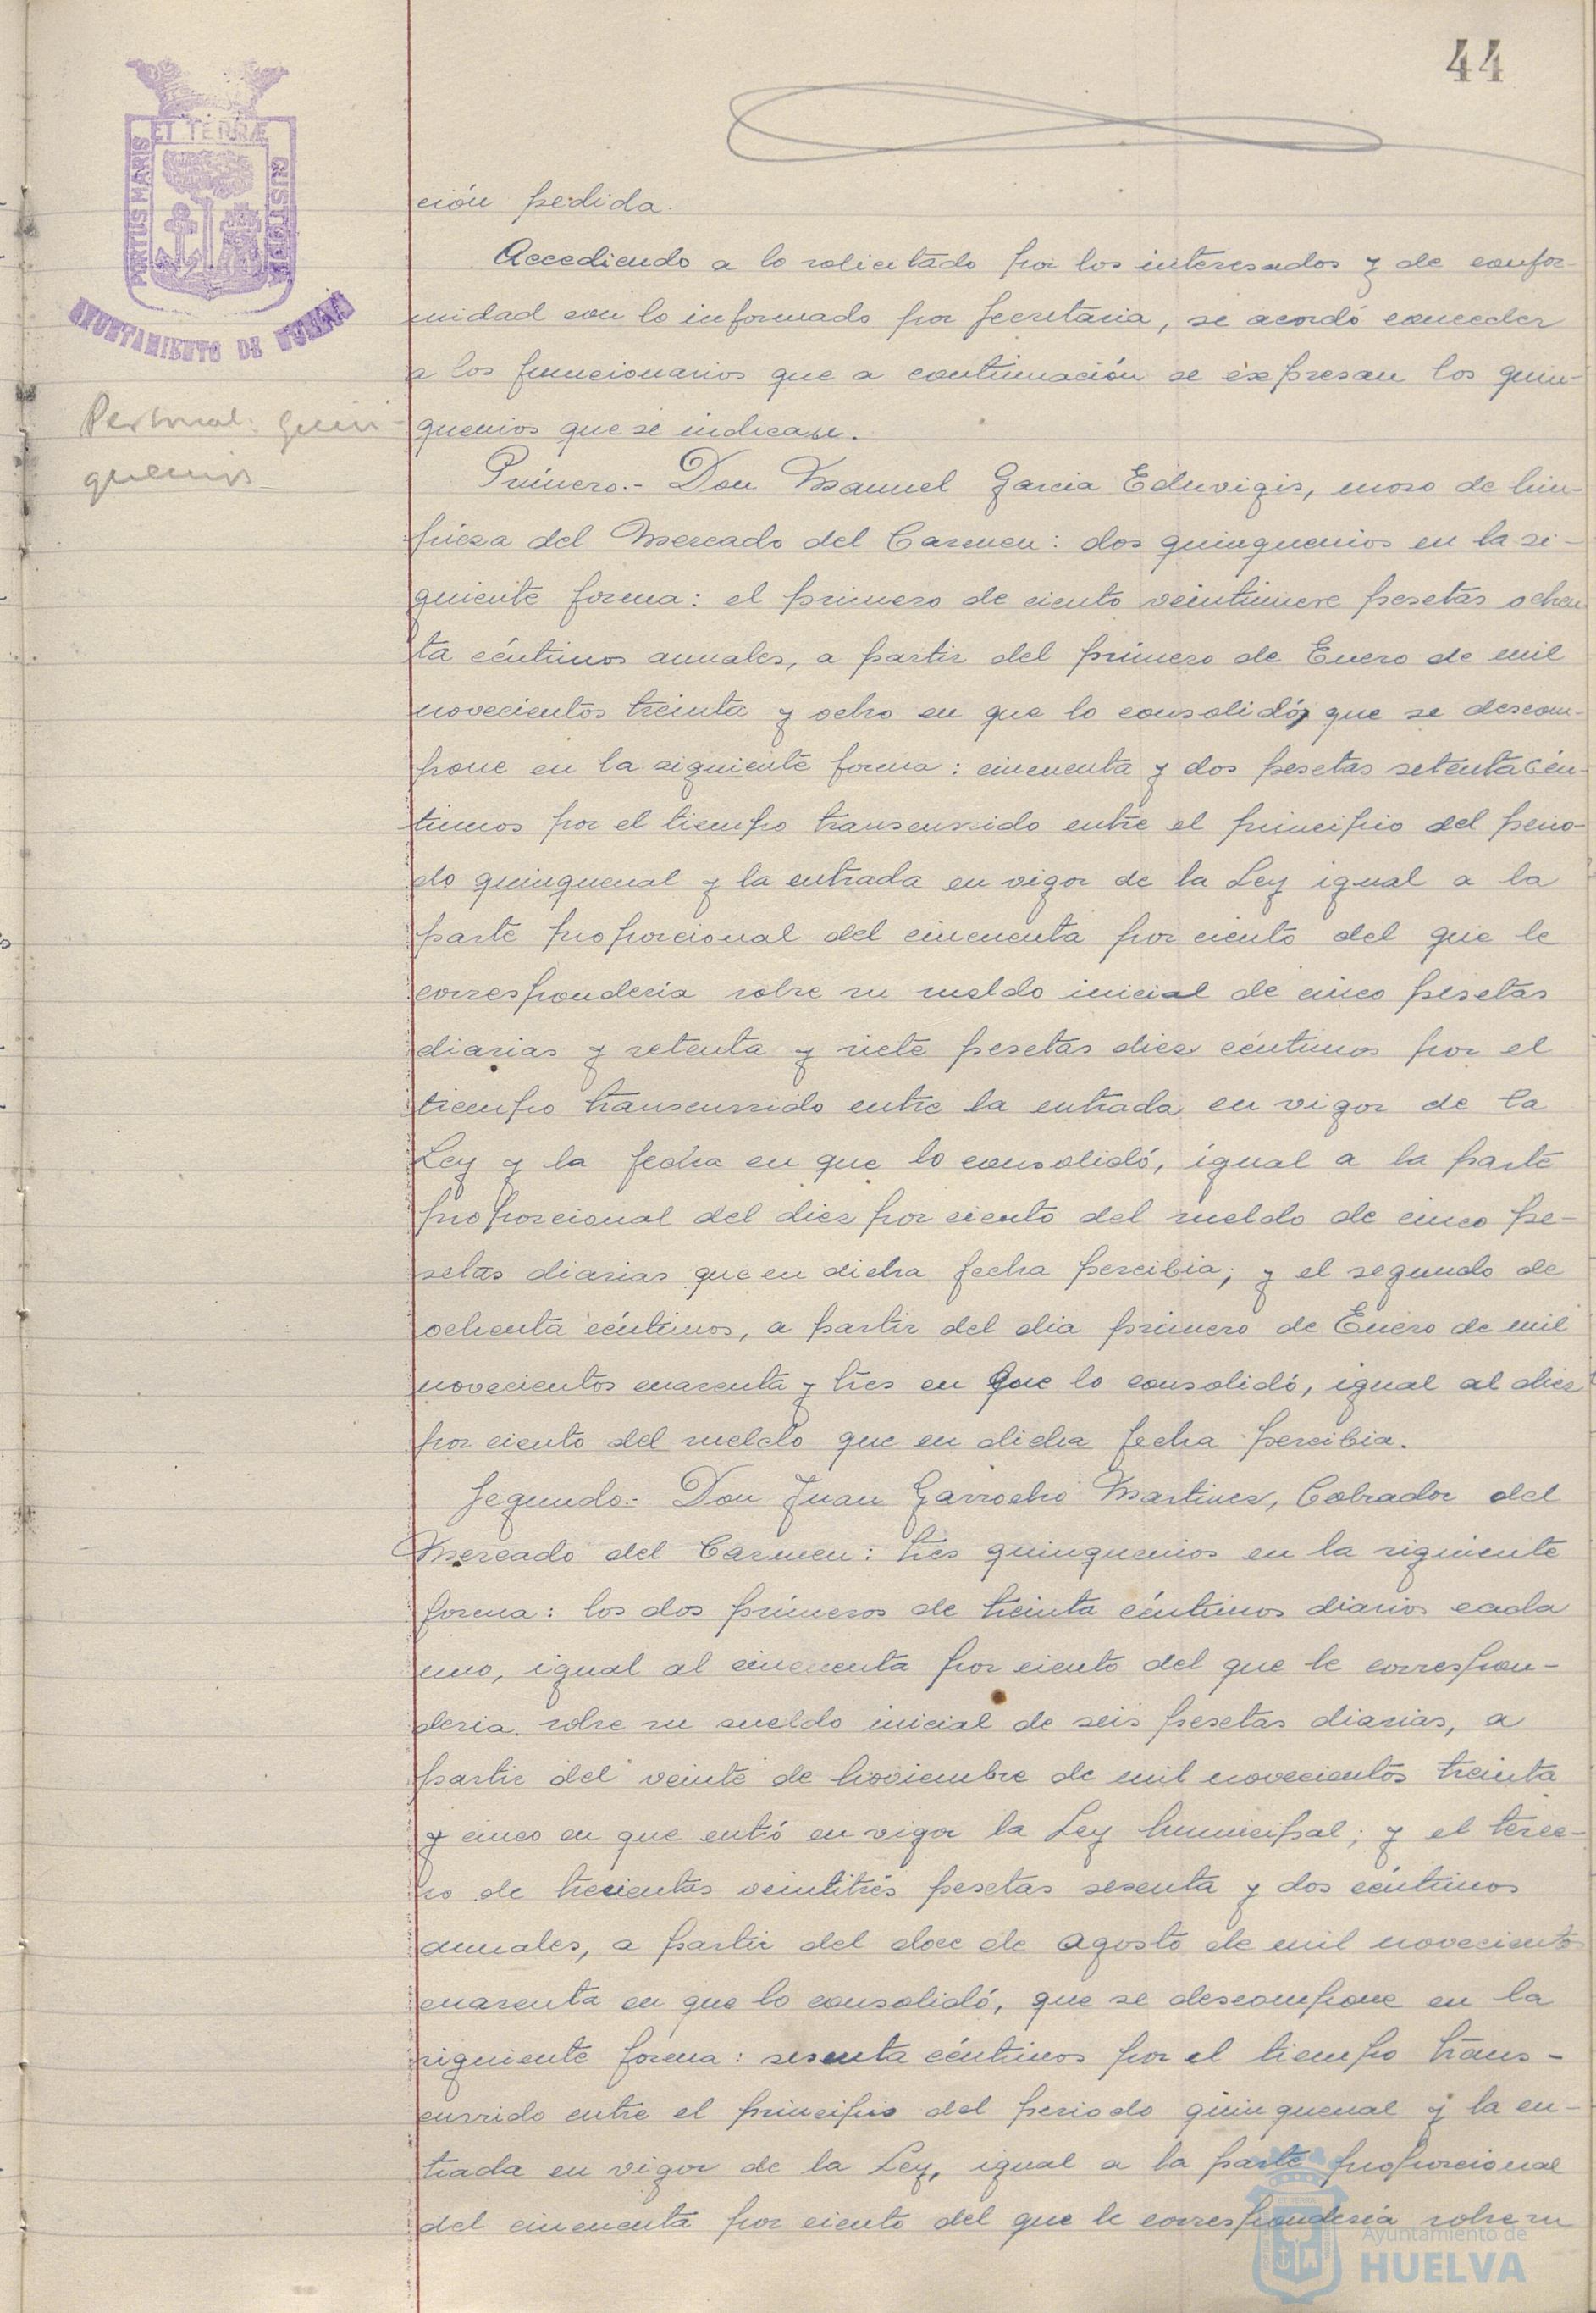 44
PORTUS MARIS
ET TERRÆ
CUSTODIA
AYUNTAMIENTO DE HUELVA
ción pedida.
Accediendo a lo solicitado por los interesados y de confor-
midad con lo informado por Secretaria, se acordó conceder
a los funcionarios que a continuación se expresan los quin-
Personal: Quin-
quenios que se indican.
quenios
Primero.- Don Manuel Garcia Eduvigis, moso de lim-
pieza del Mercado del Carmen: dos quinquenios en la si-
guiente forma: el primero de ciento veintinueve pesetas ochen
ta céntimos anuales, a partir del primero de Enero de mil
novecientos treinta y ocho en que lo consolidó, que se descom-
pone en la siguiente forma: cincuenta y dos pesetas setenta cén-
timos por el tiempo transcurrido entre el principio del perio-
do quinquenal y la entrada en vigor de la Ley igual a la
parte proporcional del cincuenta por ciento del que le
corresponderia sobre su sueldo inicial de cinco pesetas
diarias y setenta y siete pesetas diez céntimos por el
tiempo transcurrido entre la entrada en vigor de la
Ley y la fecha en que lo consolidó, igual a la parte
proporcional del diez por ciento del sueldo de cinco pe-
setas diarias que en dicha fecha percibia; y el segundo de
ochenta céntimos, a partir del dia primero de Enero de mil
novecientos cuarenta y tres en que lo consolidó, igual al diez
por ciento del sueldo que en dicha fecha percibia.
Segundo.- Don Juan Garrocho Martinez, Cobrador del
Mercado del Carmen: tres quinquenios en la siguiente
forma: los dos primeros de treinta céntimos diarios cada
uno, igual al cincuenta por ciento del que le correspon-
deria sobre su sueldo inicial de seis pesetas diarias, a
partir del veinte de Noviembre de mil novecientos treinta
y cinco en que entró en vigor la Ley Municipal; y el terce-
ro de trescientas veintitrés pesetas sesenta y dos céntimos
anuales, a partir del doce de Agosto de mil novecientos
cuarenta en que lo consolidó, que se descompone en la
siguiente forma: sesenta céntimos por el tiempo trans-
currido entre el principio del periodo quinquenal y la en-
trada en vigor de la Ley, igual a la parte proporcional
del cincuenta por ciento del que le corresponderia sobre su
Ayuntamiento de
HUELVA